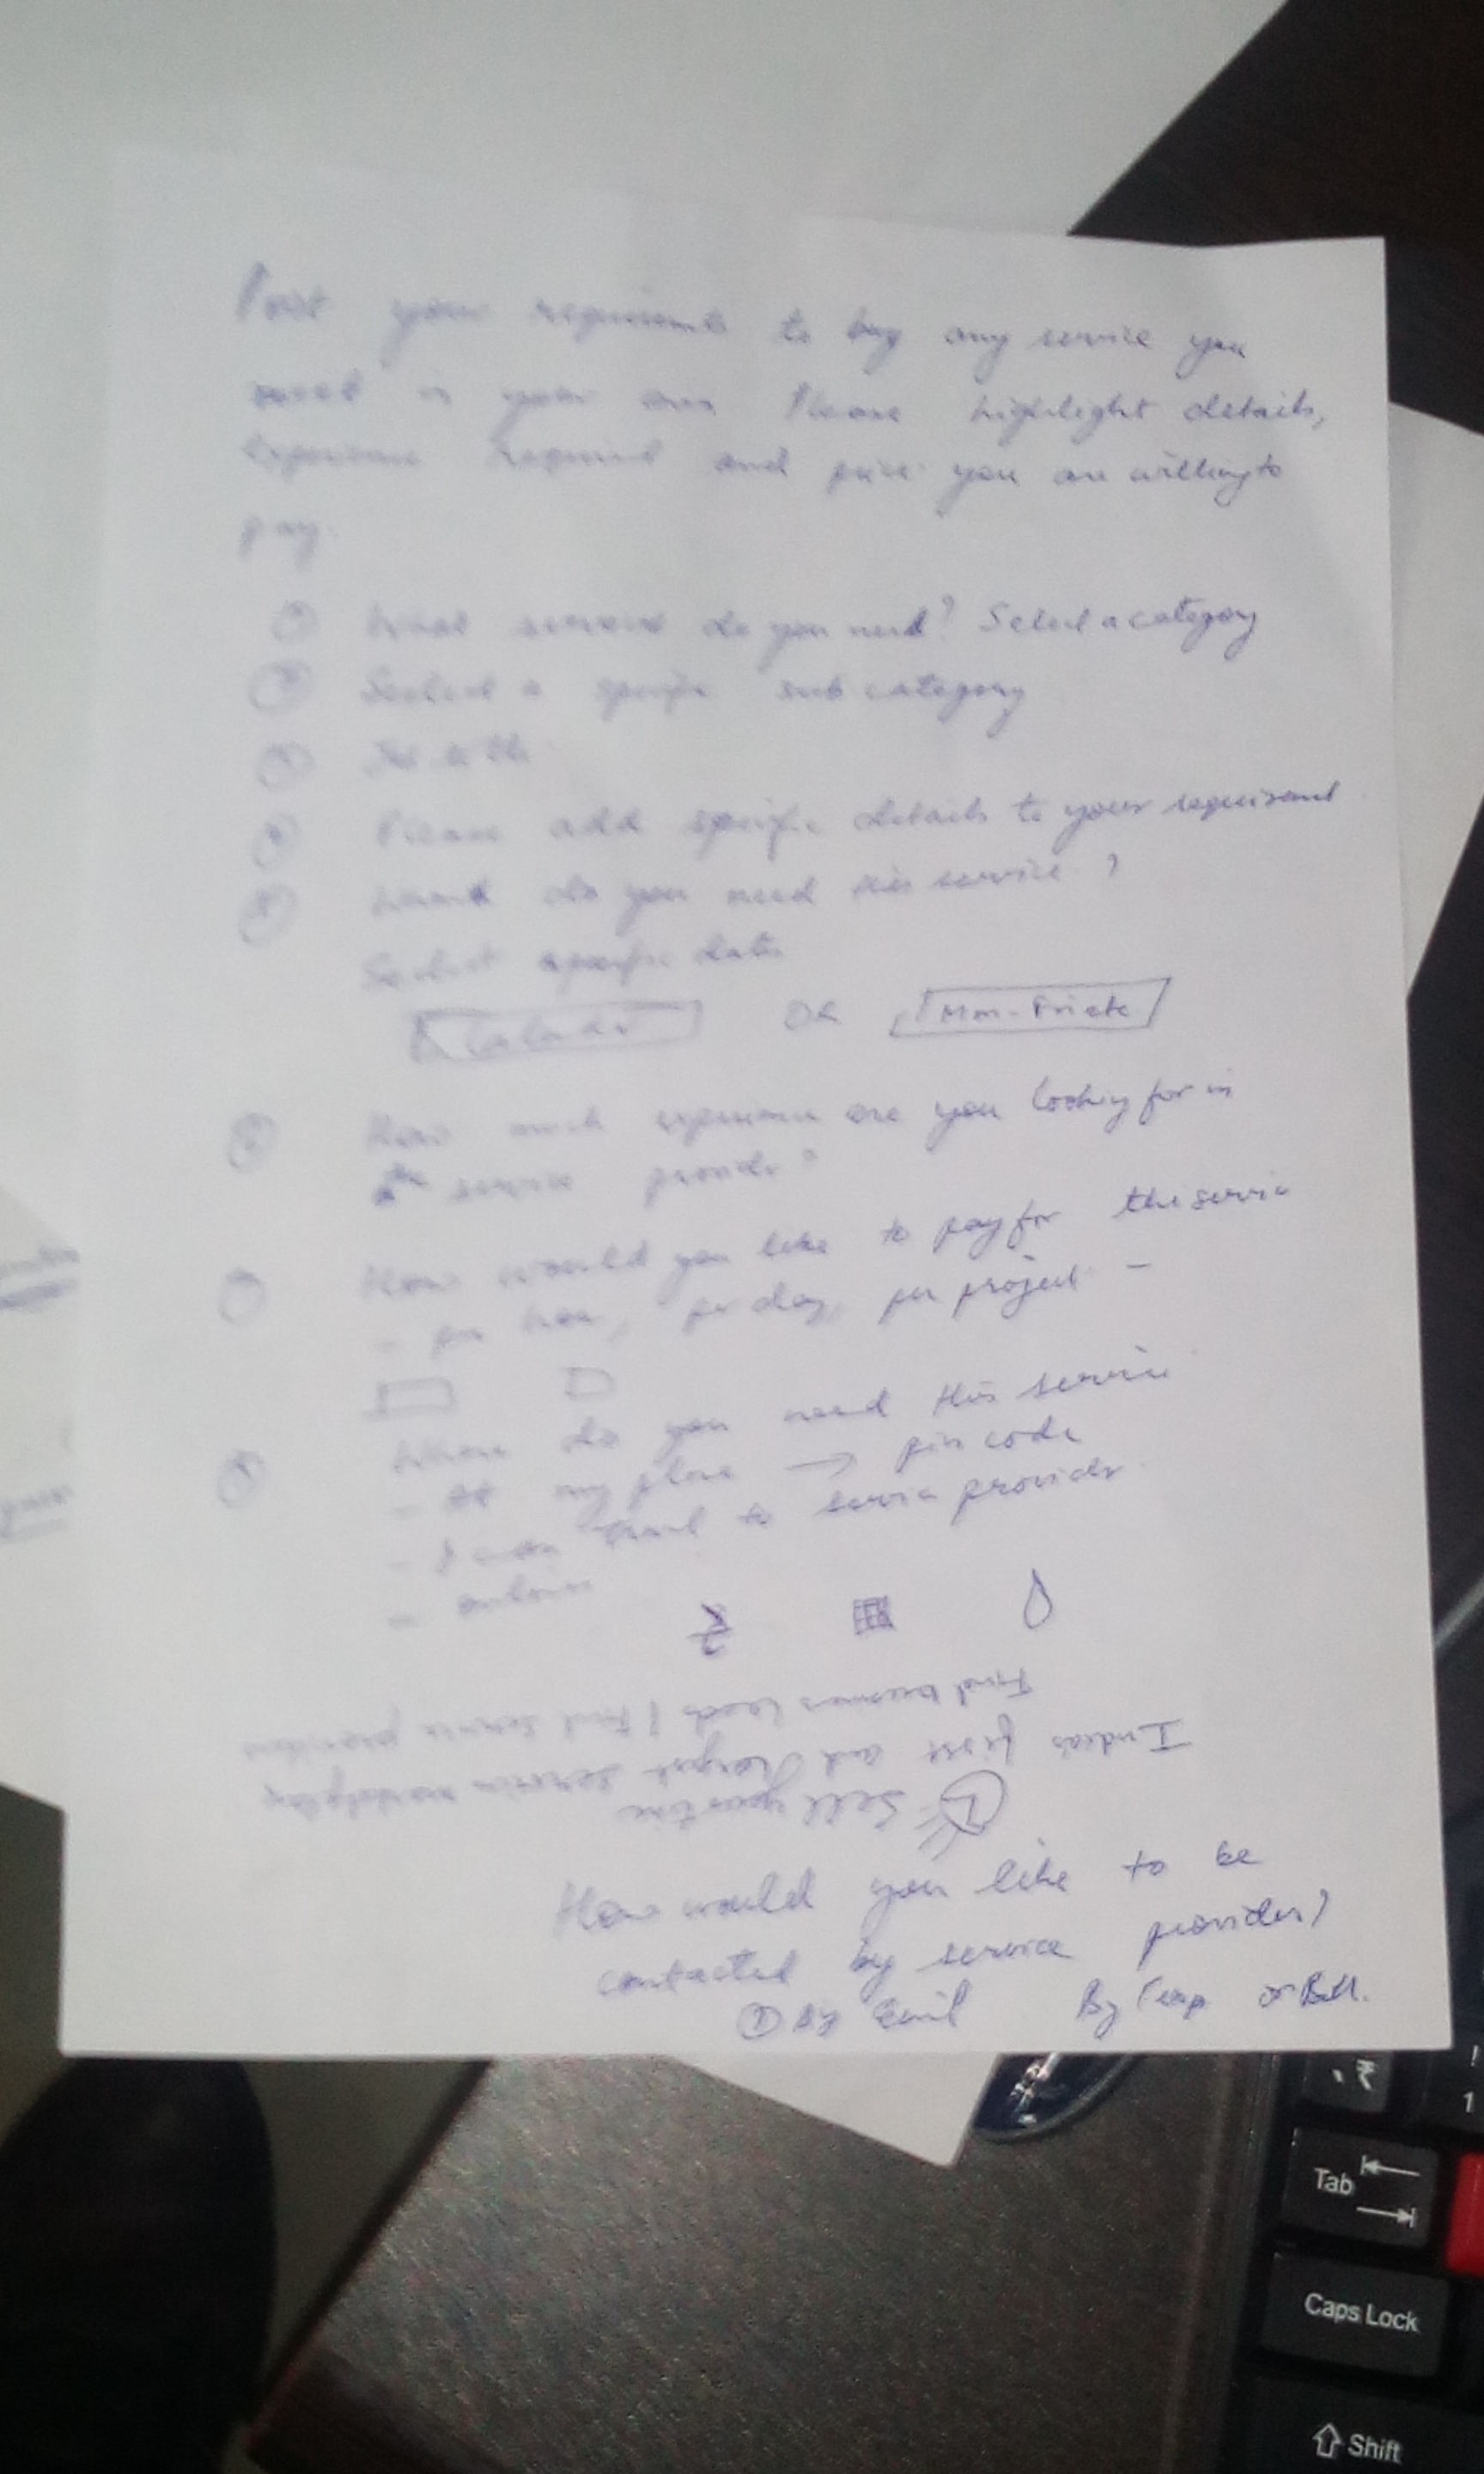 Post your requirements to buy any service you
need in your area Please highlight details,
Experience required and price you are willing to
pay.
What service do you need? Select a category
Select a specific sub category
Please add specific details to your requirement
do you need this service ?
Select specific date
OR
How much experience are you looking for in
service provider?
How would you like to pay for the service
- per hour, per day, per project -
Where do you need this service
- At my place → pin code
travel to service provider
- online
Find business leads / Find service providers
India's first and largest service marketplace
① Sell your time
How would you like to be
contacted by service provider?
① By Email By or Both.
₹
!
1
Tab
Caps Lock
⇧ Shift